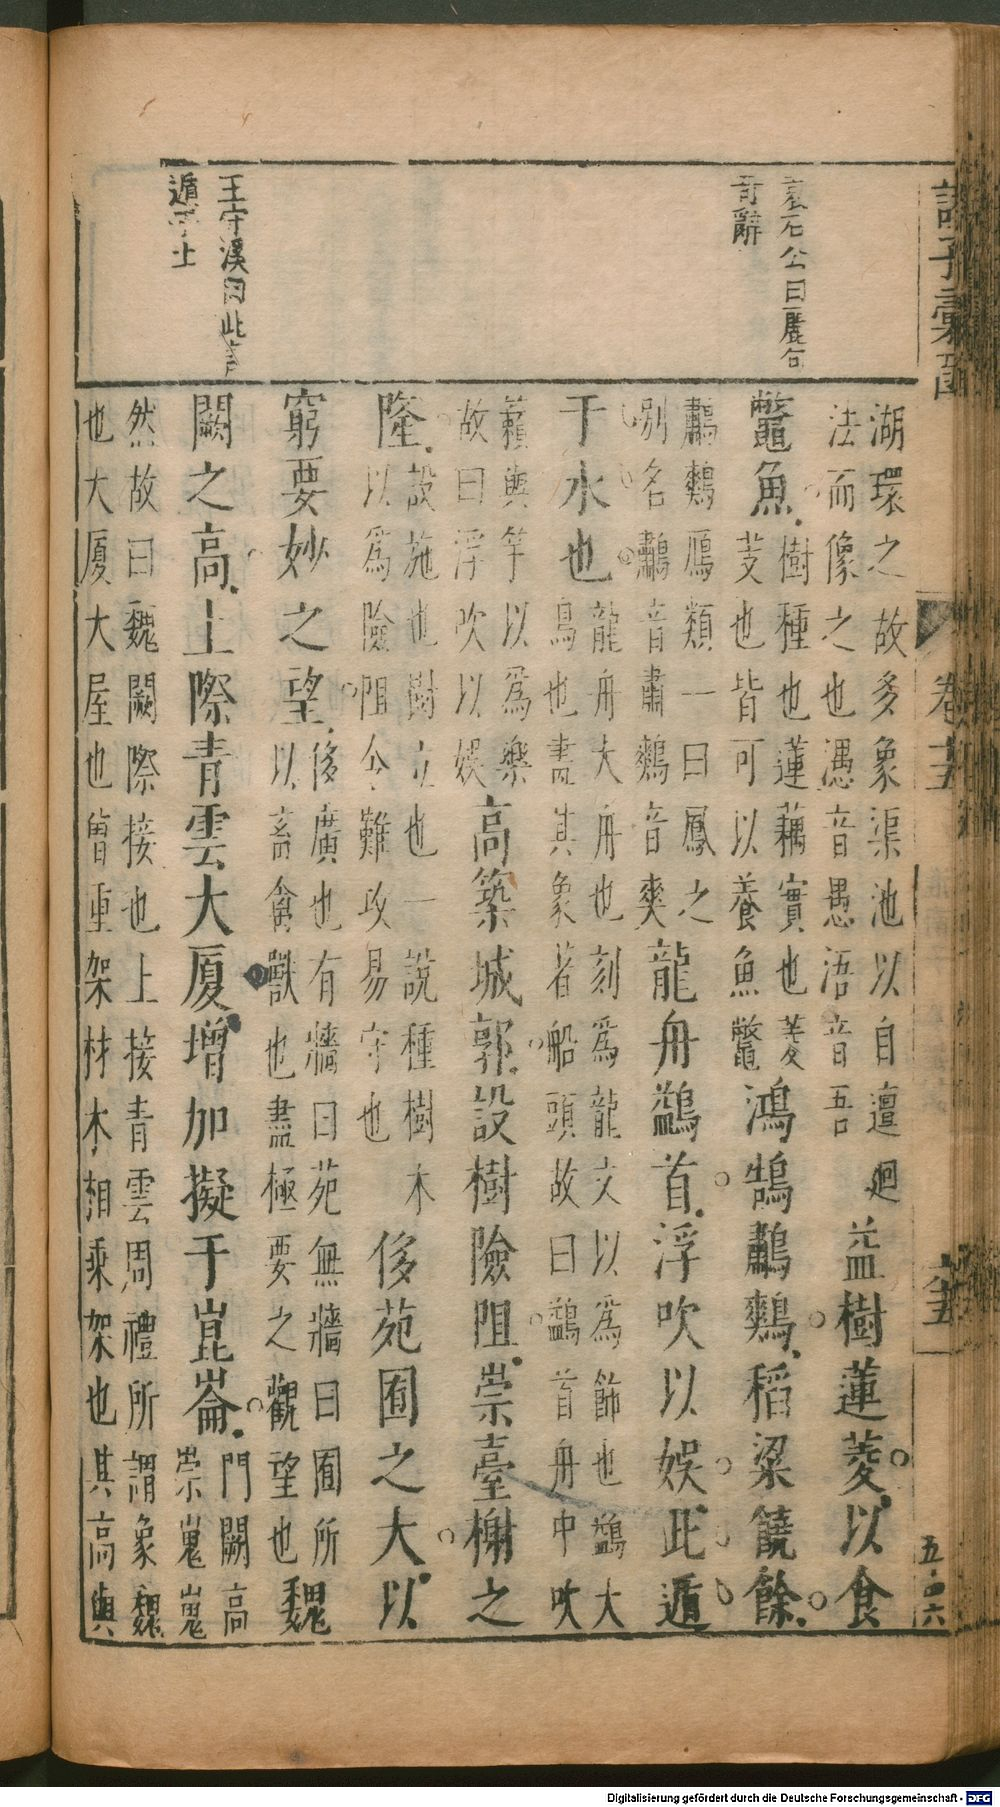 諸子彙函
卷十五
袁石公曰麗句
奇辭
王守溪曰此言
遁乎土
湖環之故多象渠池以自邅廻
法而像之也湡音愚浯音吾
益樹蓮菱以食
鼈魚
樹種也蓮藕實也菱
芰也皆可以養魚鼈
鴻鵠鷫鷞稻粱饒餘
鷫鷞鴈類一曰鳳之
別名鷫音肅鷞音爽
龍舟鷁首浮吹以娛此遁
于水也
龍舟大舟也刻為龍文以為飾也鷁大
鳥也畫其象著船頭故曰鷁首舟中吹
籟與竽以為樂
故曰浮吹以娛
高築城郭設樹險阻崇臺榭之
隆
設施也樹立也一說種樹木
以為險阻令難攻易守也
侈苑囿之大以
窮要妙之望
侈廣也有牆曰苑無牆曰囿所
以畜禽獸也盡極要之觀望也
魏
闕之高上際青雲大廈增加擬于崑崙
門闕高
崇嵬嵬
然故曰魏闕際接也上接青雲周禮所謂象魏
也大廈大屋也曾重架材木相乘架也其高與
Digitalisierung gefördert durch die Deutsche Forschungsgemeinschaft - DFG